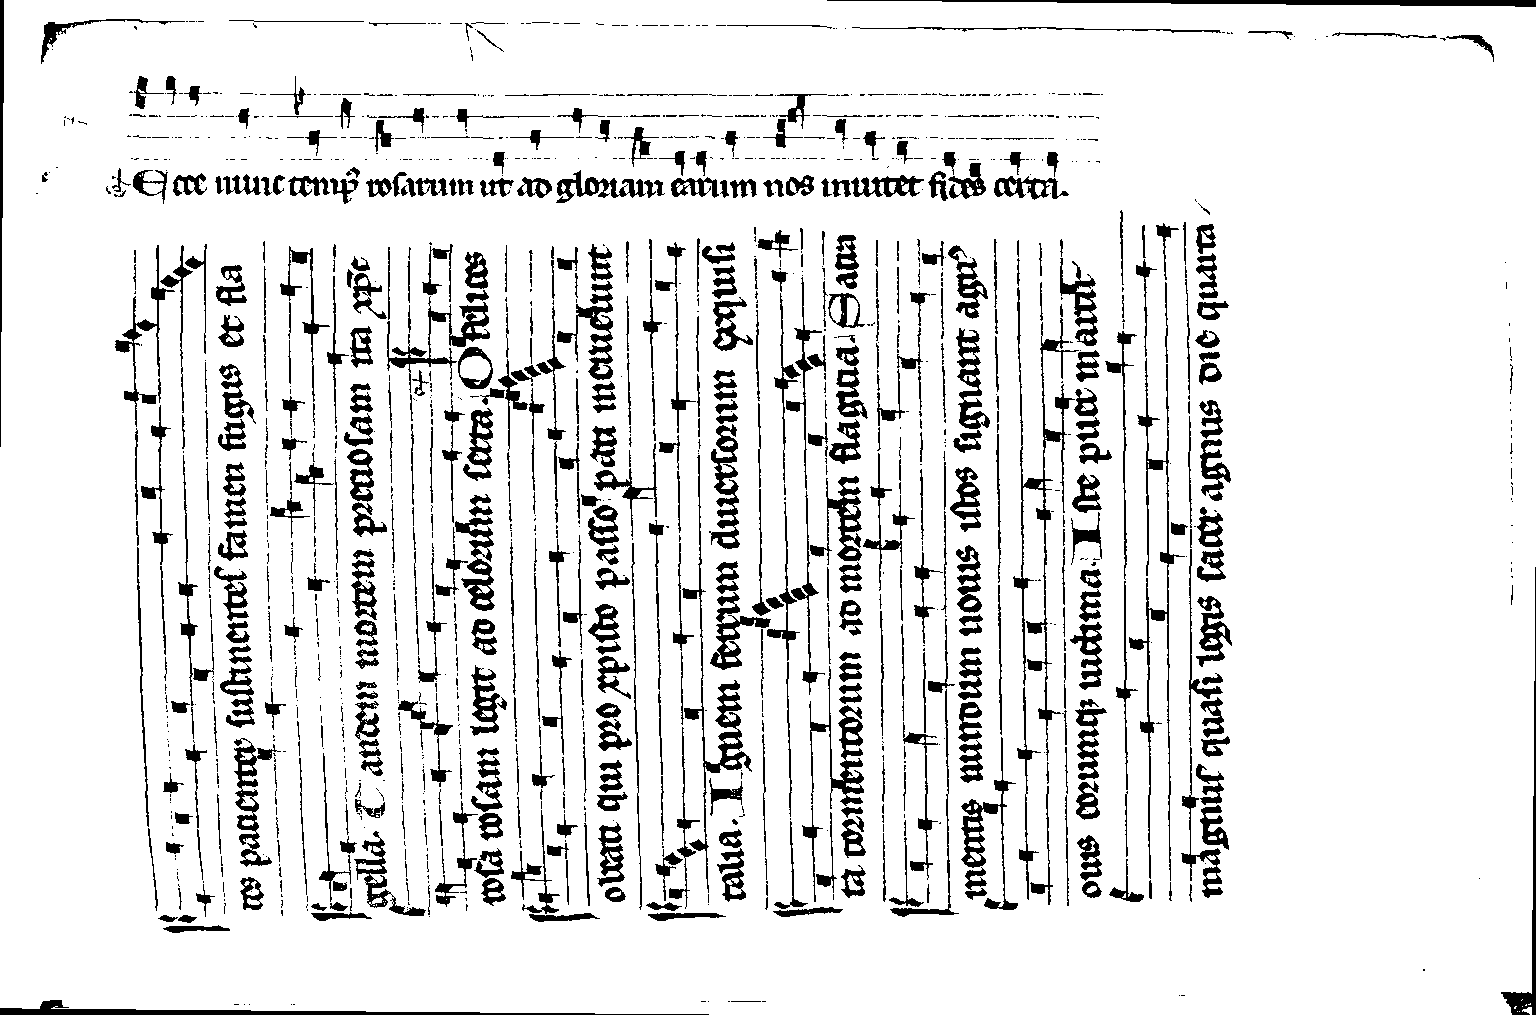 Ecce nunc temp⁹ rosarum ut ad gloriam earum nos inuitet fides certa.
res pacienter sustinentes famen frigus et fla
gella. Tandem mortem preciosam ita xp̄c
rosa rosam legit ad celorum serta. O felices
oblati qui pro xpisto passo pati meruerunt
talia. Ignem ferrum diuersorum exquisi
ta tormentorum ad mortem flagicia. Sacra
mentis mundum nouis istos signant agni
ouis corumq; uictima. Iste puer mactat
magnus quasi legis sacer agnus die quarta